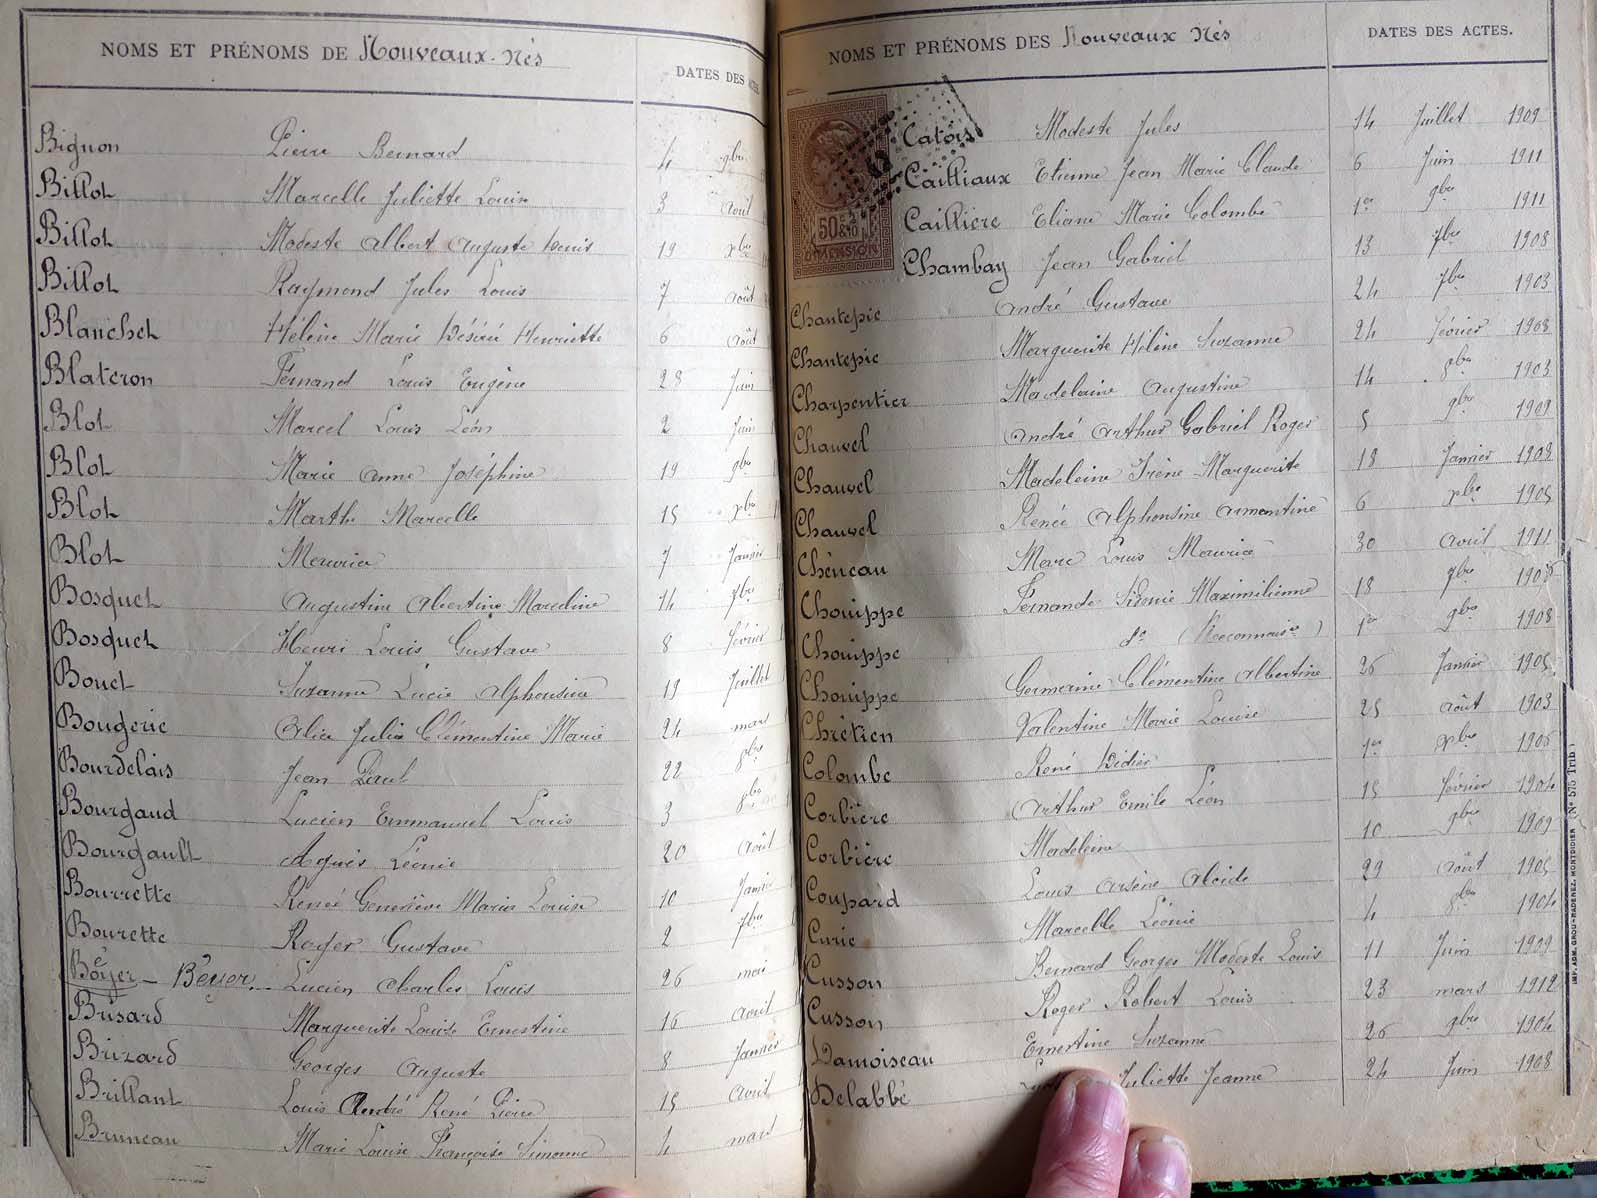 NOMS ET PRÉNOMS DE Nouveaux-Nés
DATES DES
Bignon Pierre Bernard 4 9bre
Billot Marcelle Juliette Louise 3 août
Billot Modeste Albert Auguste Denis 19 xbre
Billot Raymond Jules Louis 7 août
Blanchet Hélène Marie Désirée Henriette 6 août
Blateron Fernand Louis Eugène 28 Juin
Blot Marcel Louis Léon 2 Juin
Blot Marie Anne Joséphine 19 9bre
Blot Marthe Marcelle 15 xbre
Blot Maurice 7 Janvier
Bosquet Augustine Albertine Marceline 14 7bre
Bosquet Henri Louis Gustave 8 février
Bouet Suzanne Lucie Alphonsine 19 Juillet
Bougerie Alice Julia Clémentine Marie 24 mars
Bourdelais Jean Paul 22 8bre
Bourgaud Lucien Emmanuel Louis 3 8bre
Bourgault Agnès Léonie 20 août
Bourrette Renée Geneviève Maria Louise 10 Janvier
Bourette Roger Gustave 2 7bre
Boëyer - Bëyer Lucien Charles Louis 26 mai
Brisard Marguerite Louise Ernestine 16 août
Brizard Georges Auguste 8 Janvier
Brillant Louis André René Pierre 15 avril
Bruneau Marie Louise Françoise Simonne 4 mars
NOMS ET PRÉNOMS DES Nouveaux Nés
DATES DES ACTES.
50c
DIMENSION
Catois Modeste Jules 14 Juillet 1909
Cailliaux Etienne Jean Marie Claude 6 Juin 1911
Caillière Eliane Marie Colombe 1er 9bre 1911
Chambay Jean Gabriel 13 7bre 1908
Chantepie André Gustave 24 7bre 1903
Chantepie Marguerite Hélène Suzanne 24 février 1908
Charpentier Madeleine Augustine 14 8bre 1903
Chauvel André Arthur Gabriel Roger 5 9bre 1909
Chauvel Madeleine Irène Marguerite 18 Janvier 1908
Chauvel Renée Alphonsine Armantine 6 xbre 1905
Chéneau Marc Louis Maurice 30 avril 1911
Chouippe Fernande Sidonie Maximilienne 18 7bre
Chouippe do (Reconnaisce) 1er 9bre 1908
Chouippe Germaine Clémentine Albertine 26 Janvier 1905
Chrétien Valentine Marie Louise 25 août 1903
Colombe René Didier 1er xbre 1906
Corbière Arthur Emile Léon 15 février 1904
Corbière Madeleine 10 9bre 1909
Coupard Louis Arsène Alcide 29 août 1905
Curie Marcelle Léonie 4 8bre 1904
Cusson Bernard Georges Modeste Louis 11 Juin 1909
Cusson Roger Robert Louis 23 mars 1912
Damoiseau Ernestine Suzanne 26 9bre 1904
Delabbé Juliette Jeanne 24 Juin 1908
IMP. ADM. GROU-RADENEZ, MONTDIDIER (No 575 Trib)